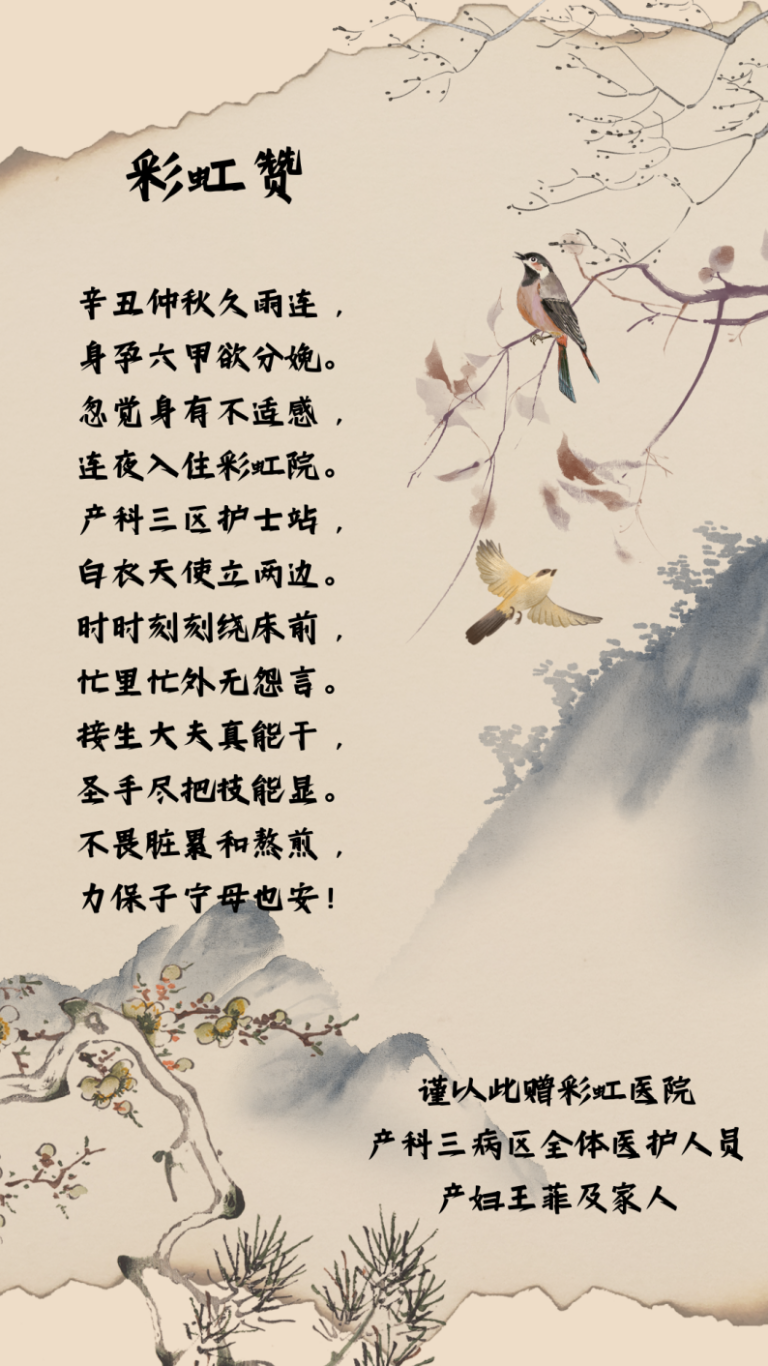 彩虹赞
辛丑仲秋久雨连，
身孕六甲欲分娩。
忽觉身有不适感，
连夜入住彩虹院。
产科三区护士站，
白衣天使立两边。
时时刻刻绕床前，
忙里忙外无怨言。
接生大夫真能干，
圣手尽把技能显。
不畏脏累和熬煎，
力保子宁母也安！
谨以此赠彩虹医院
产科三病区全体医护人员
产妇王菲及家人